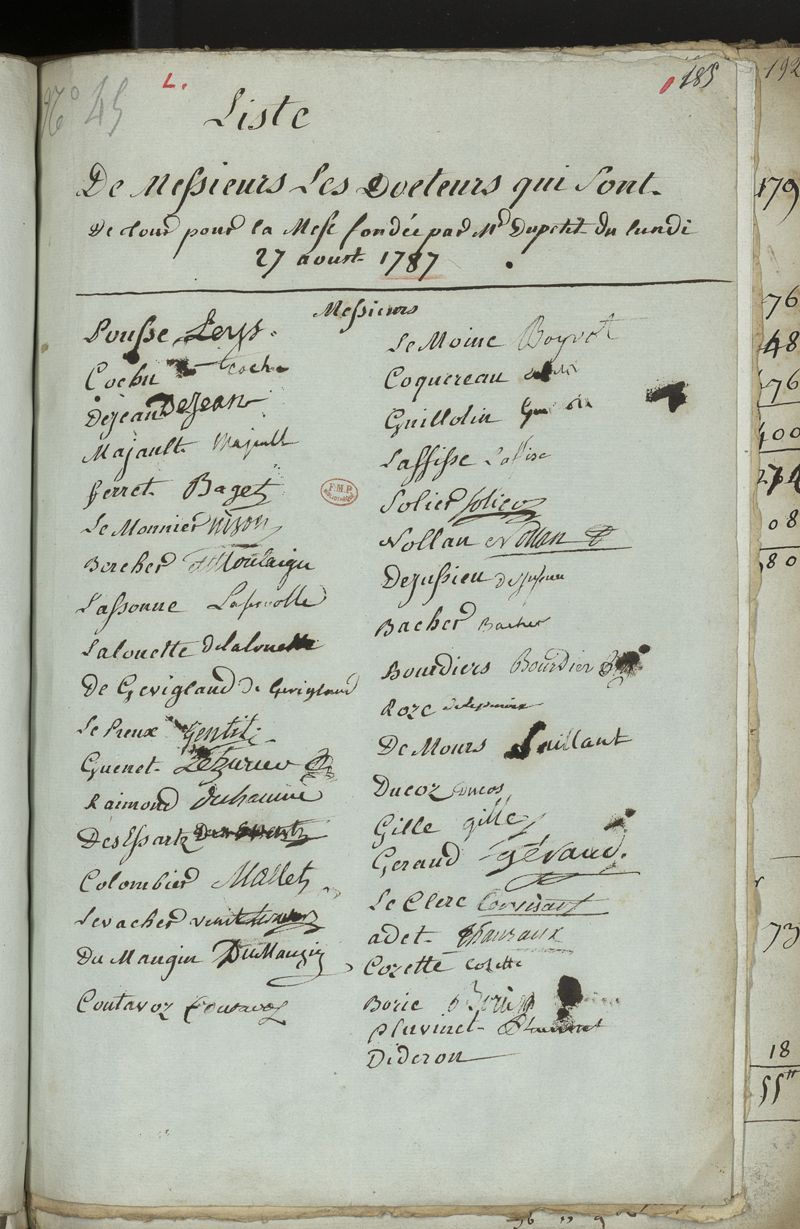 N° 45
L.
185
Liste
De Messieurs Les Docteurs qui Sont
De tour pour la Messe fondée par Mr Dupetit du lundi
27 aoust 1787
Messieurs
Pousse Leys
Cochu Coch
Dejean DeJean
Majault Majault
ferret Baget
Le Monnier nison
Bercher
Lassonne Laservolle
Lalouette delalouette
De Gevigland de Gevigland
Le Preux Gentil
Guenet
Raimond duhaume
DesEssartz Des Essartz
Colombier Mallet
Levacher
Du Mangin DuMangin
Coutavoz Coutavoz
Le Moine Boyrot
Coquereau
Guillotin
Laffisse Laffisse
Solier Solier
Nollan Nollan
Dejussieu Dejussieu
Bacher Bacher
Bourdiers Bourdier
Roze
De Mours Saillant
Ducoz Ducos
Gille gille
Geraud géraud.
Le Clerc Corvisart
adet thauraux
Cozette Cozette
Borie Borie
Pluvinet Pluvinet
Dideron
F.M.P.
192
179
76
48
76
400
274
08
80
73
18
55"